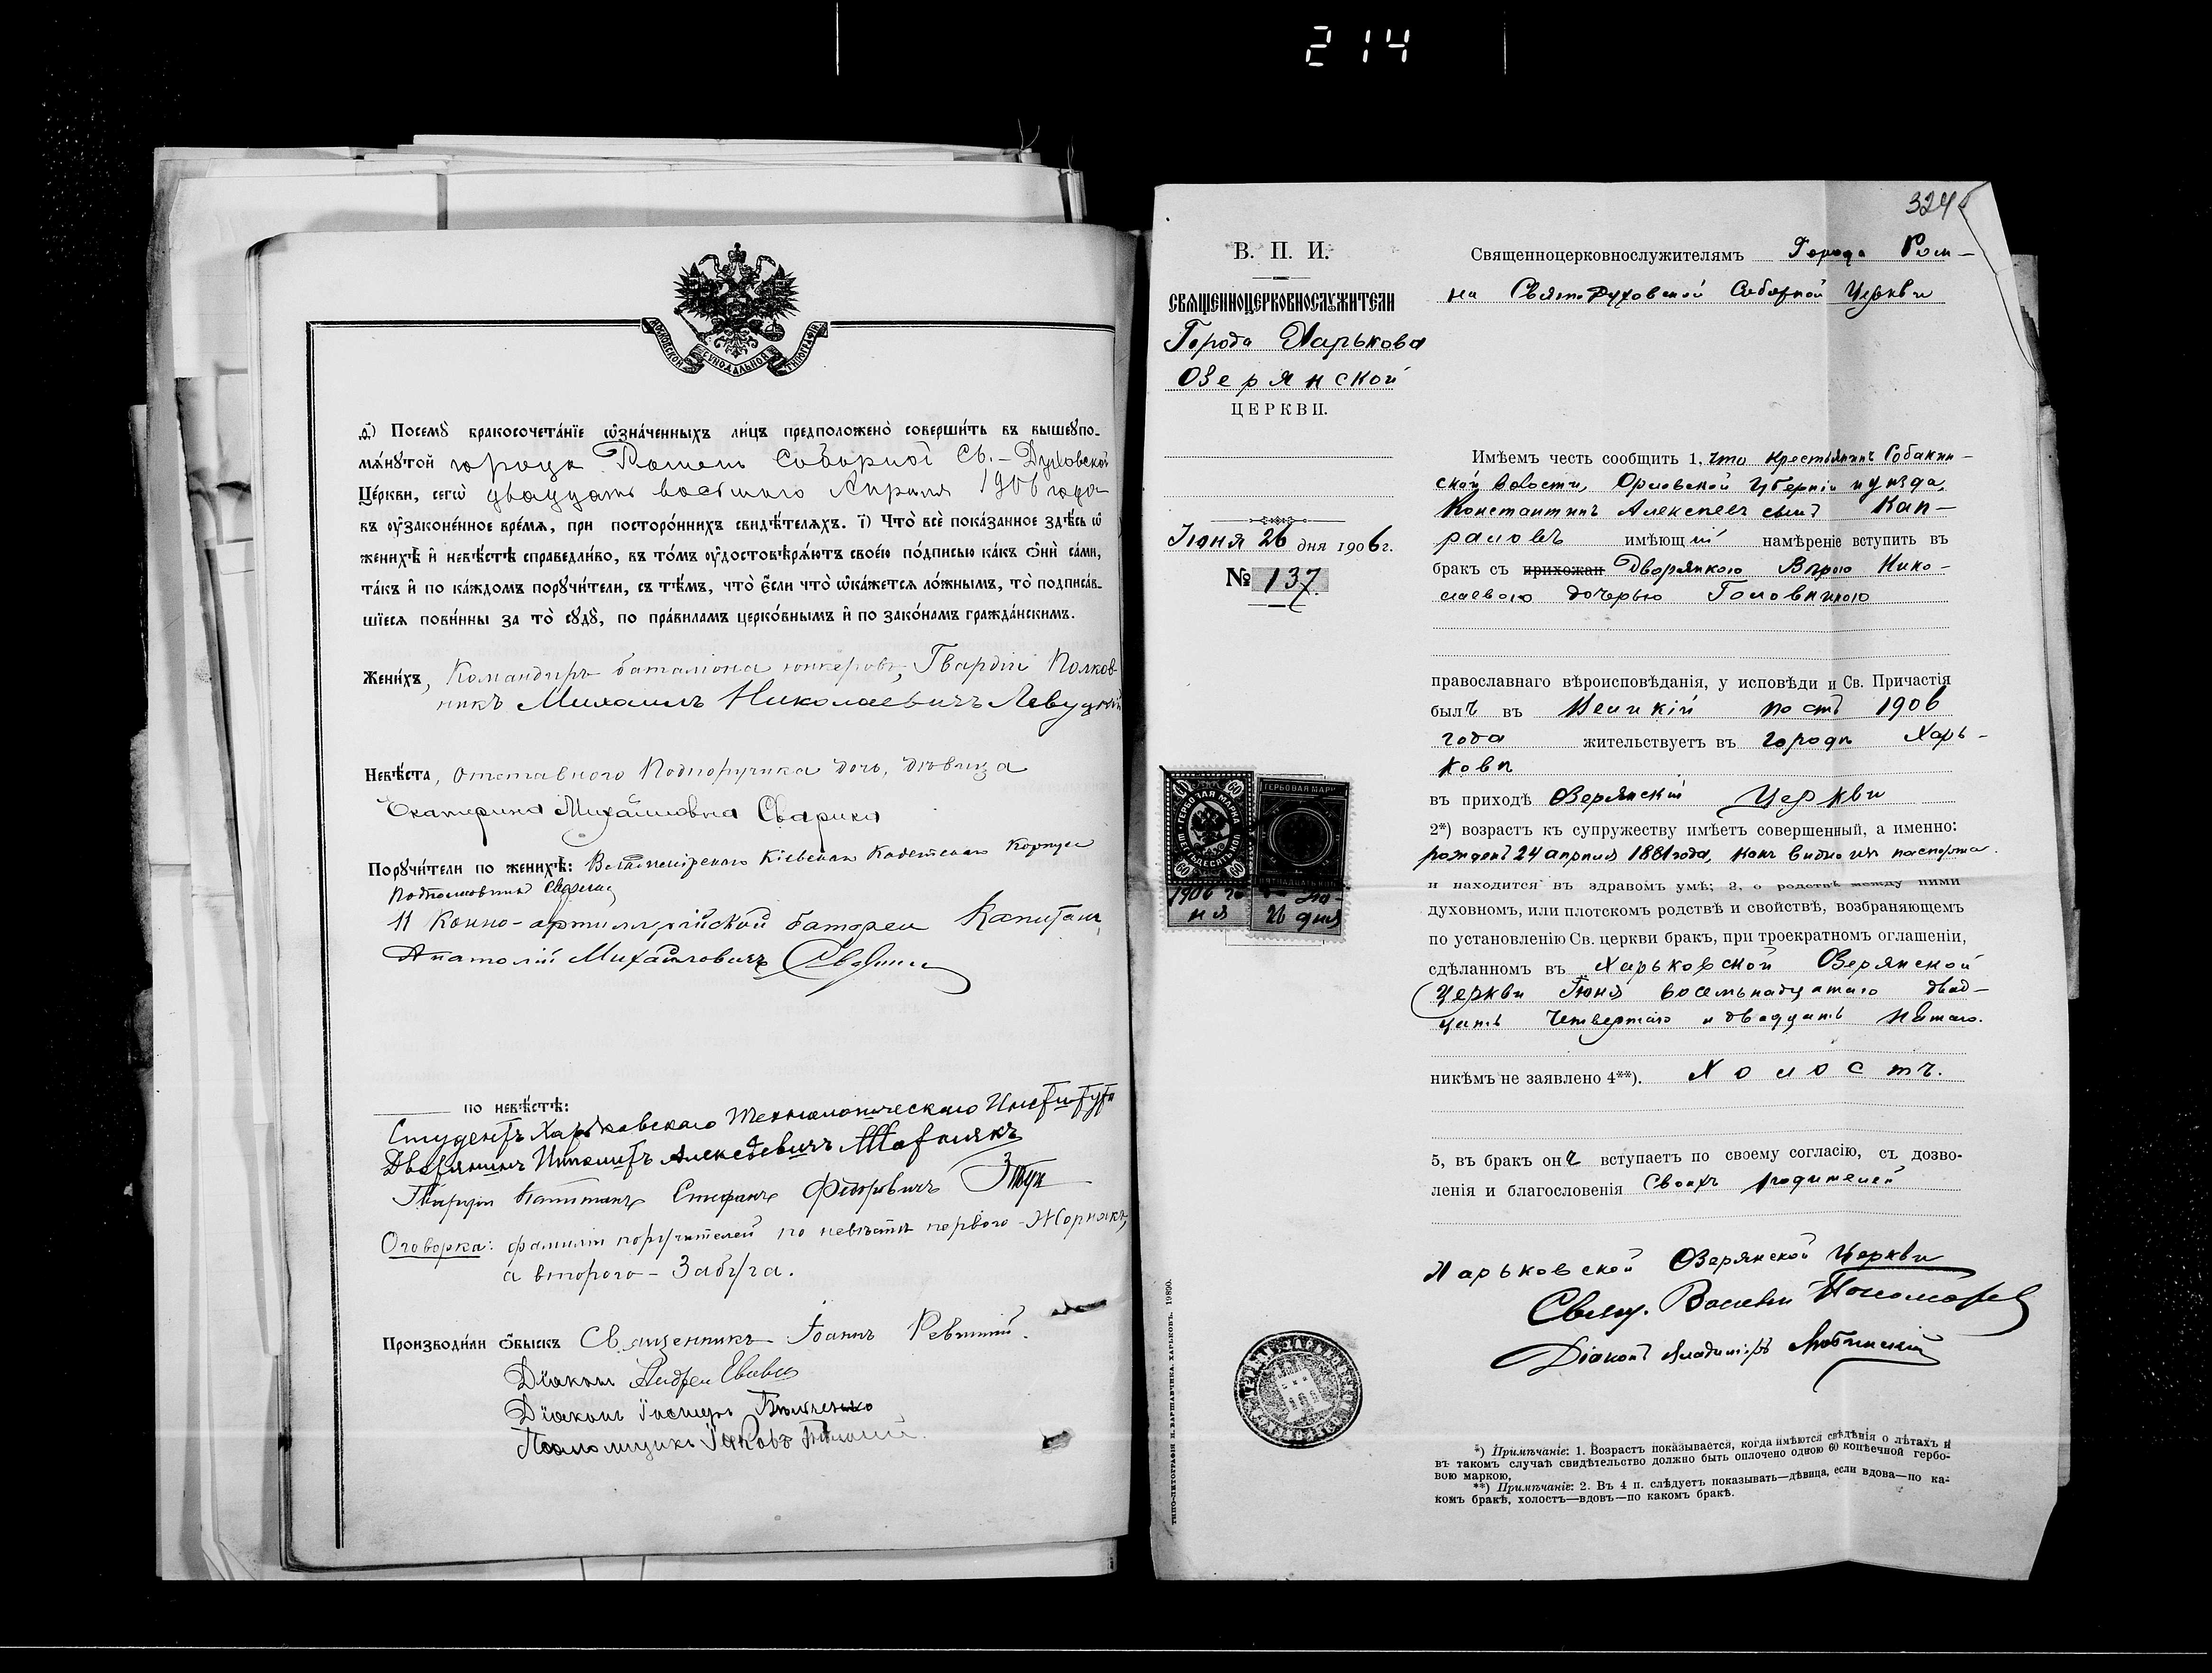 214
МОСКОВСКОЙ СѴНОДАЛЬНОЙ ТИПОГРАФІИ
д҃) Посемꙋ̀ бракосочета́нїе ѡ҆зна́ченныхъ ли́цъ предположено̀ соверши́ть въ вышеꙋпо-
мѧ́нꙋтой города Роменъ Соборной Св.-Духовской
Це́ркви, сегѡ̀ двадцать восьмого Апрѣля 1906 года
въ ᲂу҆зако́ненное вре́мѧ, при посторо́ннихъ свидѣ́телѧхъ. і҃) Что̀ всѐ пока́занное здѣ́сь ѡ҆
женихѣ̀ и҆ невѣ́стѣ справедли́во, въ то́мъ ᲂу҆достовѣрѧ́ютъ свое́ю по́дписью ка́къ ѻ҆нѝ са́ми,
та́къ и҆ по ка́ждомъ порꙋчи́тели, съ тѣ́мъ, что̀ є҆́сли что̀ ѡ҆ка́жетсѧ ло́жнымъ, то̀ подписа́в-
шїесѧ пови́нны за то̀ сꙋдꙋ̀, по пра́виламъ церко́внымъ и҆ по зако́намъ гражда́нскимъ.
Жени́хъ, Командиръ баталіона юнкеровъ, Гвардіи Полков-
никъ Михаилъ Николаевичъ Левуцкій
Невѣ́ста, отставного Подпоручика дочь, дѣвица
Екатерина Михайловна Сварика
Порꙋчи́тели по женихѣ̀: Владимірскаго Кіевскаго Кадетскаго Корпуса
Подполковникъ
11 Конно-артиллерійской батареи Капитанъ
Анатолій Михайловичъ
по невѣ́стѣ:
Студентъ Харьковскаго Технологическаго Института
Дворянинъ Алексѣевичъ
Гвардіи Капитанъ Стефанъ Федоровичъ
Оговорка: фамиліи поручителей по невѣстѣ перваго - Жорнякъ,
а второго - Забуга.
Производи́ли ѻ҆́быскъ Священникъ Іоаннъ
Діаконъ Андрей
Діаконъ
Псаломщикъ Іаковъ
324
В. П. И.
СВЯЩЕННОЦЕРКОВНОСЛУЖИТЕЛИ
Города Харькова
Озерянской
ЦЕРКВИ.
Іюня 26 дня 1906 г.
№ 137.
ГЕРБОВАЯ МАРКА ШЕСТЬДЕСЯТЪ КОП.
60 60 60 60
ГЕРБОВАЯ МАРК
1906 го
26 дня
Священноцерковнослужителямъ Города Ром-
на Свято Духовской Соборной Церкви
Имѣемъ честь сообщить 1, что крестьянинъ Собакин-
ской волости, Орловской губерніи и уѣзда,
Константинъ Алексеевъ сынъ Кап-
раловъ имѣющій намѣреніе вступить въ
бракъ съ прихожан Дворянкою Вѣрою Нико-
лаевою дочерью Головниною
православнаго вѣроисповѣданія, у исповѣди и Св. Причастія
былъ въ Великій постъ 1906
года жительствуетъ въ городѣ Харь-
ковѣ
въ приходѣ Озерянскій Церкви
2*) возрастъ къ супружеству имѣетъ совершенный, а именно:
рожденъ 24 апрѣля 1881 года, какъ видно изъ паспорта.
и находится въ здравомъ умѣ; 3, о родствѣ между ними
духовномъ, или плотскомъ родствѣ и свойствѣ, возбраняющемъ
по установленію Св. церкви бракъ, при троекратномъ оглашеніи,
сдѣланномъ въ Харьковской Озерянской
Церкви Іюня восемьнадцатаго двад-
цать четвертаго и двадцать пятаго.
никѣмъ не заявлено 4**). Холостъ.
5, въ бракъ онъ вступаетъ по своему согласію, съ дозво-
ленія и благословенія своихъ родителей
Харьковской Озерянской Церкви
Свящ. Василій Пономарев
Діаконъ Владиміръ
*) Примѣчаніе: 1. Возрастъ показывается, когда имѣются свѣдѣнія о лѣтахъ и
въ такомъ случаѣ свидѣтельство должно быть оплочено одною 60 копѣечной гербо-
вою маркою,
**) Примѣчаніе: 2. Въ 4 п. слѣдуетъ показывать—дѣвица, если вдова—по ка-
комъ бракѣ, холостъ—вдовъ—по какомъ бракѣ.
ТИПО-ЛИТОГРАФІЯ Н. ВАРШАВЧИКА. ХАРЬКОВЪ. 19890.